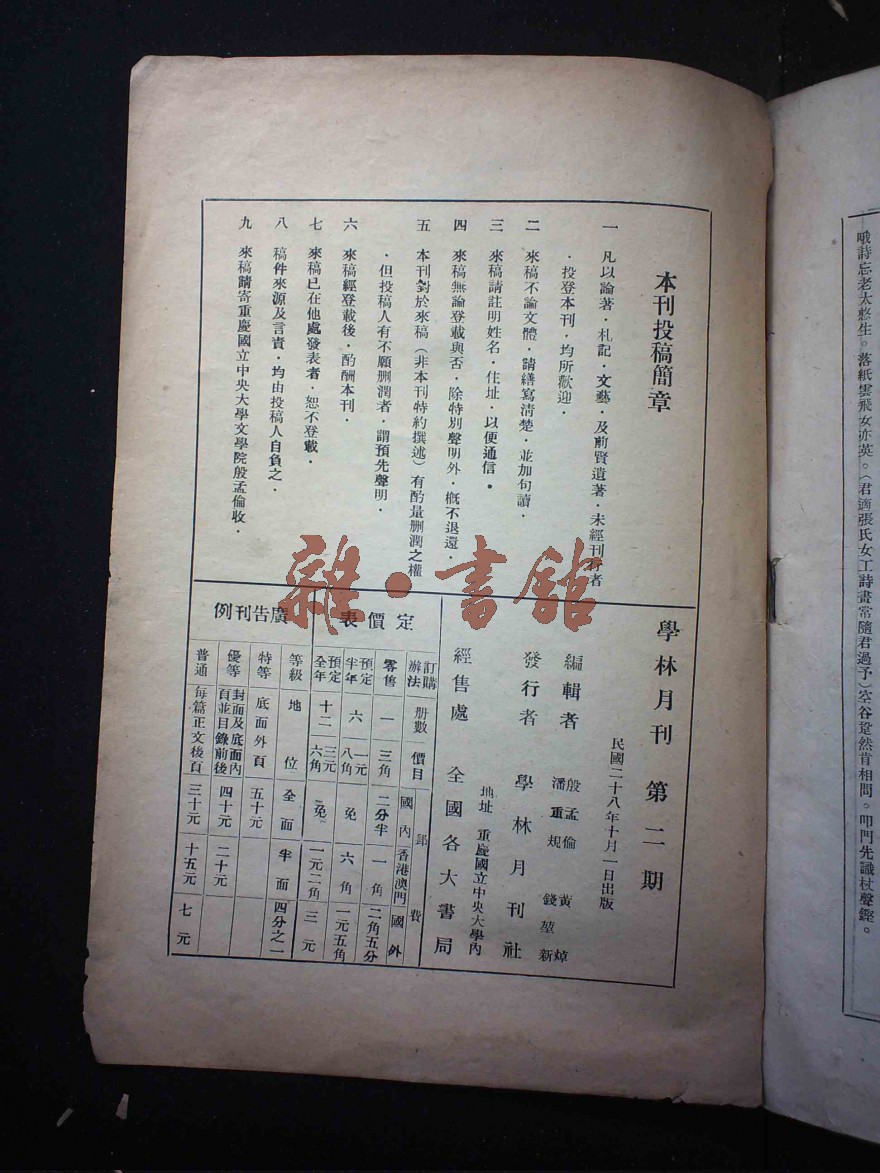 本刊投稿簡章
一 凡以論著・札記・文藝・及前賢遺著・未經刊行者
・投登本刊・均所歡迎・
二 來稿不論文體・請繕寫清楚・並加句讀・
三 來稿請註明姓名・住址・以便通信・
四 來稿無論登載與否・除特別聲明外・概不退還・
五 本刊對於來稿(非本刊特約撰述)有酌量刪潤之權
・但投稿人有不願刪潤者・謂預先聲明・
六 來稿經登載後・酌酬本刊・
七 來稿已在他處發表者・恕不登載・
八 稿件來源及言責・均由投稿人自負之・
九 來稿請寄重慶國立中央大學文學院殷孟倫收・
學林月刊 第二期
民國二十八年十月一日出版
編輯者 殷孟倫 黃焯
潘重規 錢堃新
發行者 學林月刊社
地址 重慶國立中央大學內
經售處 全國各大書局
定價表
訂購辦法 册數 價目 郵費 國內 香港澳門 國外
零售 一 三角 二分半 一角 二角五分
預定半年 六 一元八角 免 六角 一元五角
預定全年 十二 三元六角 免 一元二角 三元
廣告刊例
等級 地位 全面 半面 四分之一
特等 底面外頁 五十元
優等 封面及底面內頁並目錄前後 四十元 二十元
普通 每篇正文後頁 三十元 十五元 七元
雜・書館
哦詩忘老太憨生。落紙雲飛女亦英。(君適張氏女工詩書常隨君過予)空谷跫然肯相問。叩門先識杖聲鏗。